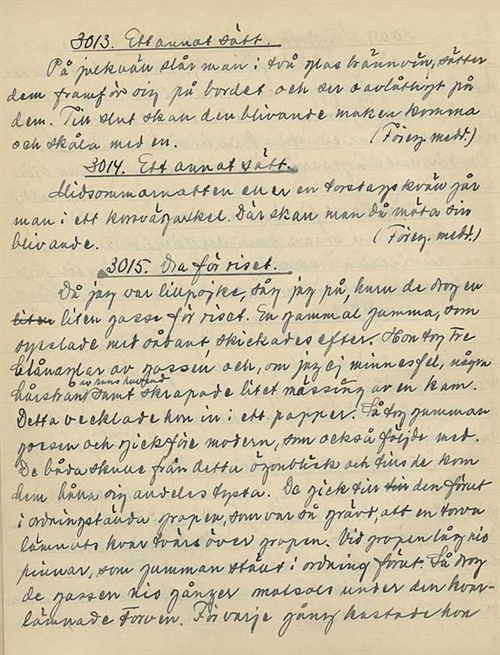 3013. Ett annat sätt.
På julkväll slår man i två glas brännvin, sätter
dem framför sig på bordet och ser oavlåtligt på
dem. Till slut skall den blivande maken komma
och skåla med en. (Föreg. medd.)
3014. Ett annat sätt.
Midsommarnatten eller en torsdagskväll går
man i ett korsvägaskel. Där skall man då möta sin
blivande. (Föreg. medd.)
3015. Dra för riset.
Då jag var lillpojke, såg jag på, huru de drog en
liten liten gosse för riset. En gammal gumma, som
sysslade med sådant, skickades efter. Hon tog tre
av gossen och, om jag ej minnes fel, några
av hans huvud
hårstrån samt skrapade litet mässing av en kam.
Detta vecklade hon in i ett papper. Så tog gumman
gossen och gick före modern, som också följde med.
De båda skulle från detta ögonblick och tills de kom
hem hålla sig alldeles tysta. De gick till den förut
i ordningställda gropen, som var så grävd, att en torva
lämnats kvar tvärs över gropen. Vid gropen låg nio
pinnar, som gumman ställt i ordning förut. Så drog
de gossen nio gånger motsols under den kvar-
lämnade torven. För varje gång kastade hon